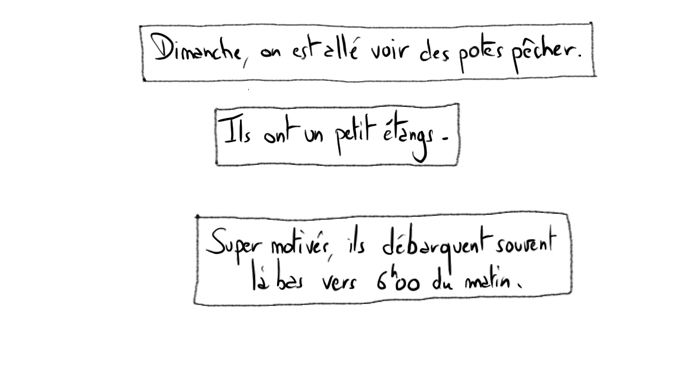 Dimanche, on est allé voir des potes pêcher.
Ils ont un petit étangs.
Super motivés, ils débarquent souvent
là bas vers 6h00 du matin.